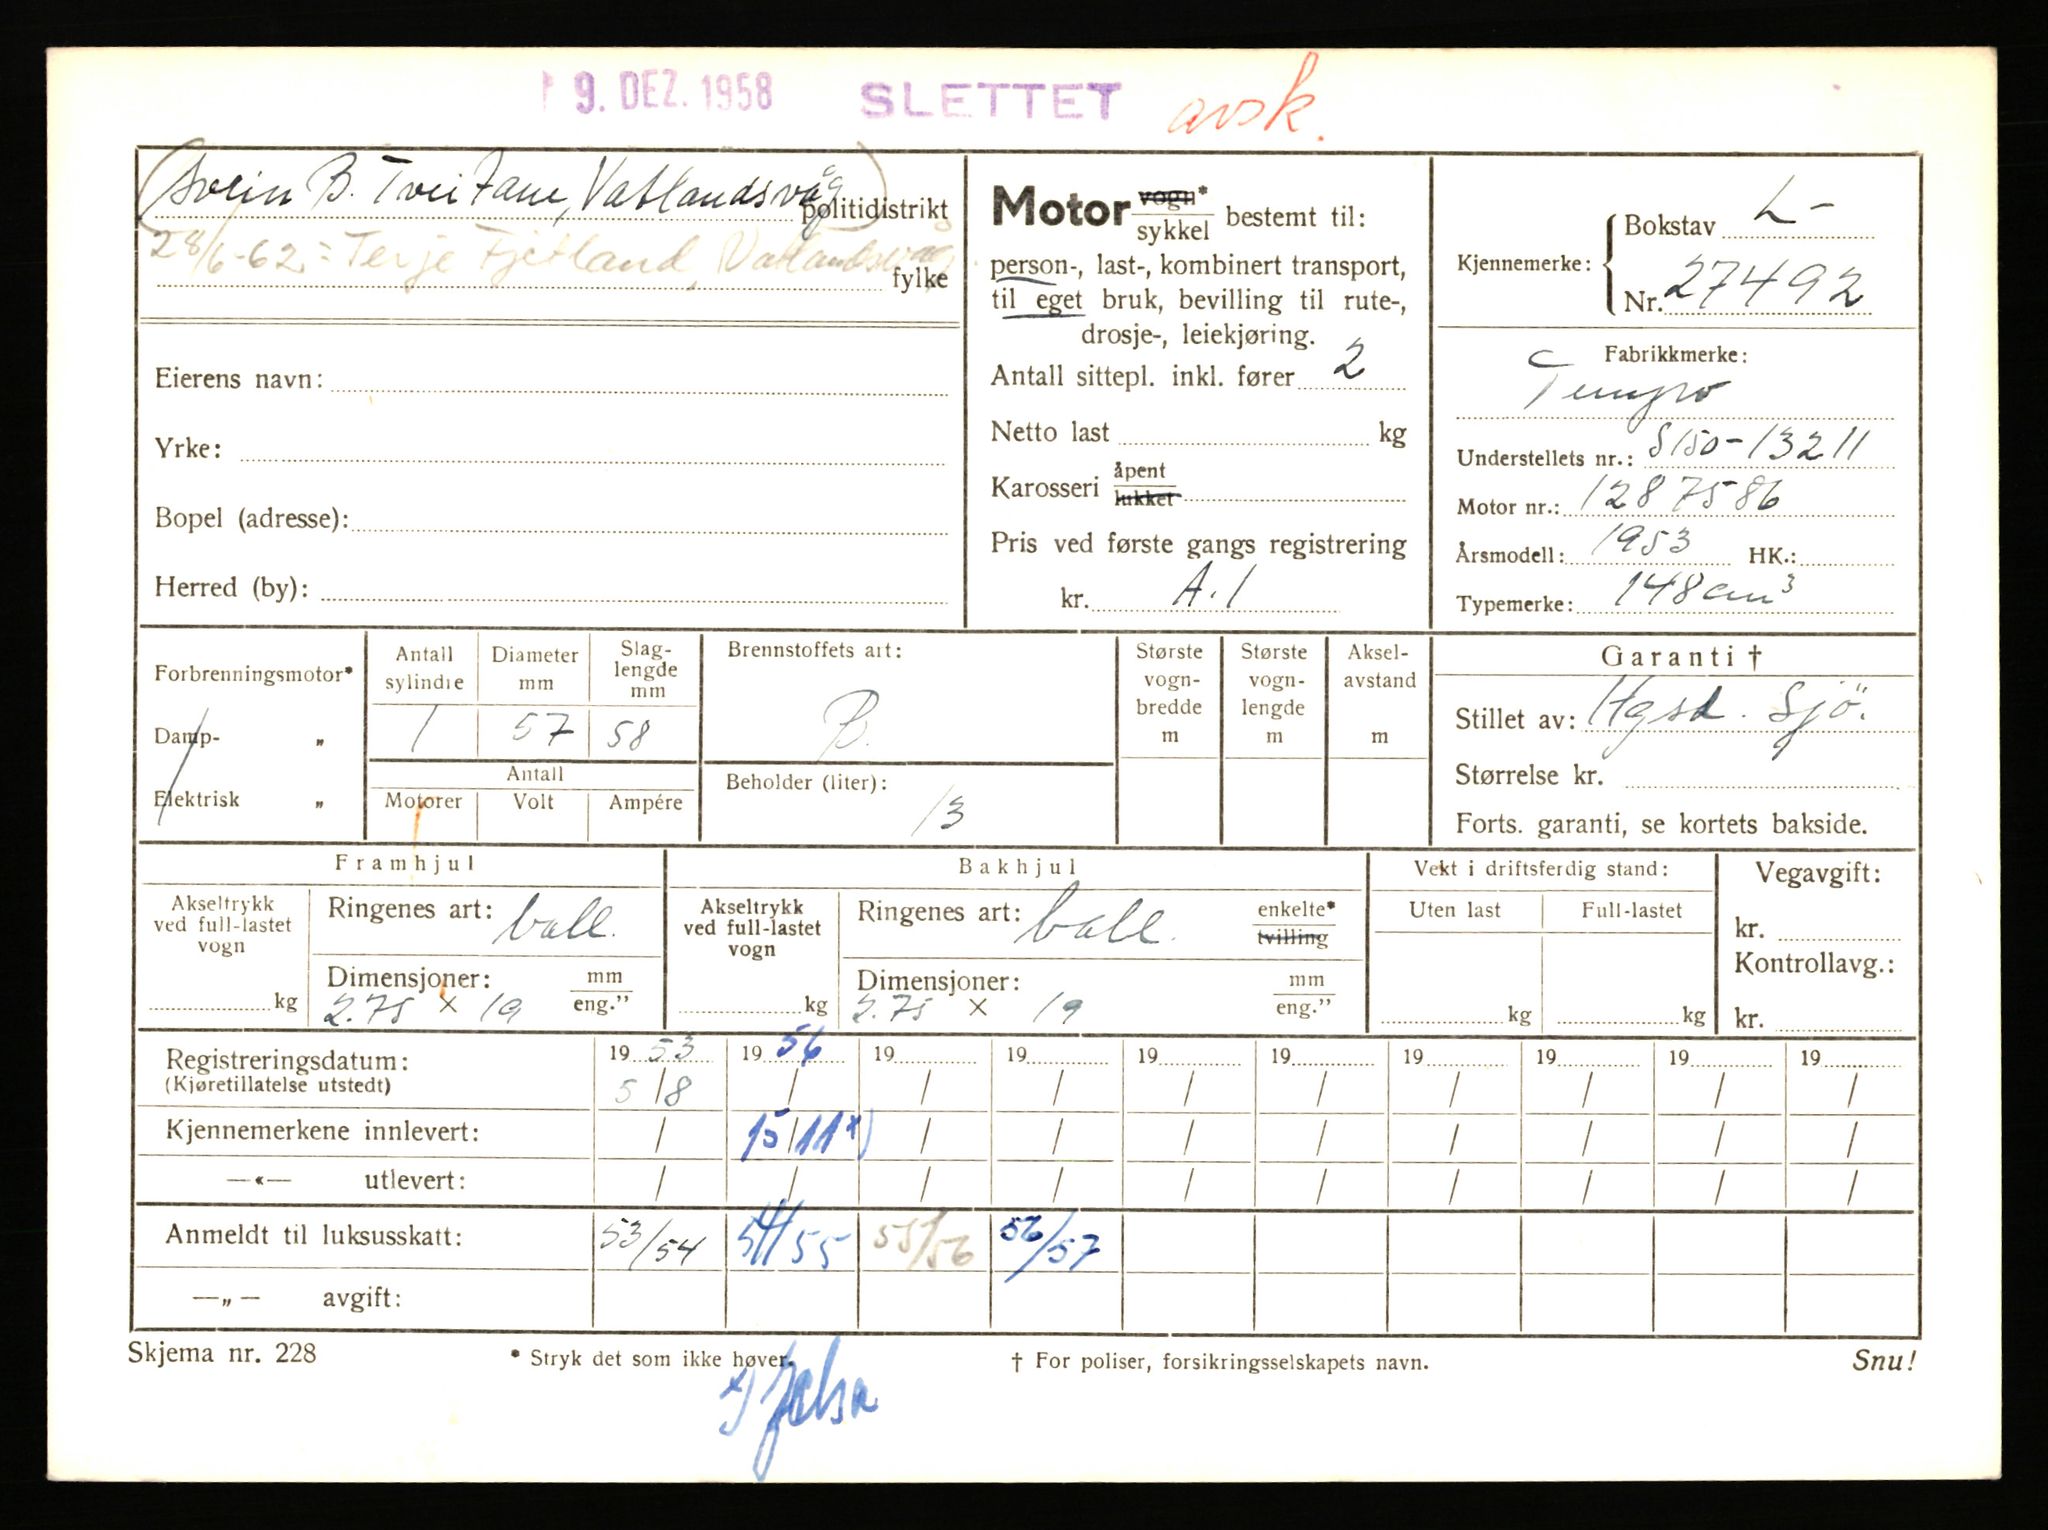 9. DEZ. 1958 SLETTET avsk.
(Svein B. Tveitane, Vatlandsvåg)
politidistrikt
28/6-62 = Terje Fjetland, Vatlandsvåg
fylke
Eierens navn:
Yrke:
Bopel (adresse):
Herred (by):
Motor vogn*/sykkel bestemt til:
person-, last-, kombinert transport,
til eget bruk, bevilling til rute-,
drosje-, leiekjøring.
Antall sittepl. inkl. fører 2
Netto last kg
Karosseri åpent/lukket
Pris ved første gangs registrering
kr. A.1
Kjennemerke: Bokstav L-
Nr. 27492
Fabrikkmerke:
Tempo
Understellets nr.: S150-13211
Motor nr.: 1287586
Årsmodell: 1953 HK.:
Typemerke: 148 cm³
Forbrenningsmotor*
Damp- „
Elektrisk „
Antall sylindre 1
Diameter mm 57
Slag-lengde mm 58
Antall
Motorer Volt Ampére
Brennstoffets art:
B.
Beholder (liter):
13
Største vogn-bredde m
Største vogn-lengde m
Aksel-avstand m
Garanti †
Stillet av: Hgsd. Sjö.
Størrelse kr.
Forts. garanti, se kortets bakside.
Framhjul
Akseltrykk ved full-lastet vogn
kg
Ringenes art: ball.
Dimensjoner: mm/eng.”
2.75 x 19
Bakhjul
Akseltrykk ved full-lastet vogn
kg
Ringenes art: ball. enkelte*/tvilling
Dimensjoner: mm/eng.”
2.75 x 19
Vekt i driftsferdig stand:
Uten last Full-lastet
kg kg
Vegavgift:
kr.
Kontrollavg.:
kr.
Registreringsdatum: 1953 1956 19 19 19 19 19 19 19 19
(Kjøretillatelse utstedt) 5/8 / / / / / / / / /
Kjennemerkene innlevert: / 15/11 x) / / / / / / / /
—«— utlevert: / / / / / / / / / /
Anmeldt til luksusskatt: 53/54 54/55 55/56 56/57
—„— avgift:
Skjema nr. 228 * Stryk det som ikke høver. † For poliser, forsikringsselskapets navn. Snu!
x) Jelsa